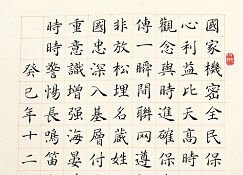 國家機密全民保
心利益比天高時
觀念與時進確保
傳一瞬間聯網遵
非放松埋名藏姓
國忠深入基層付
重意識增強海晏
時時警惕長鳴笛
癸巳年十二